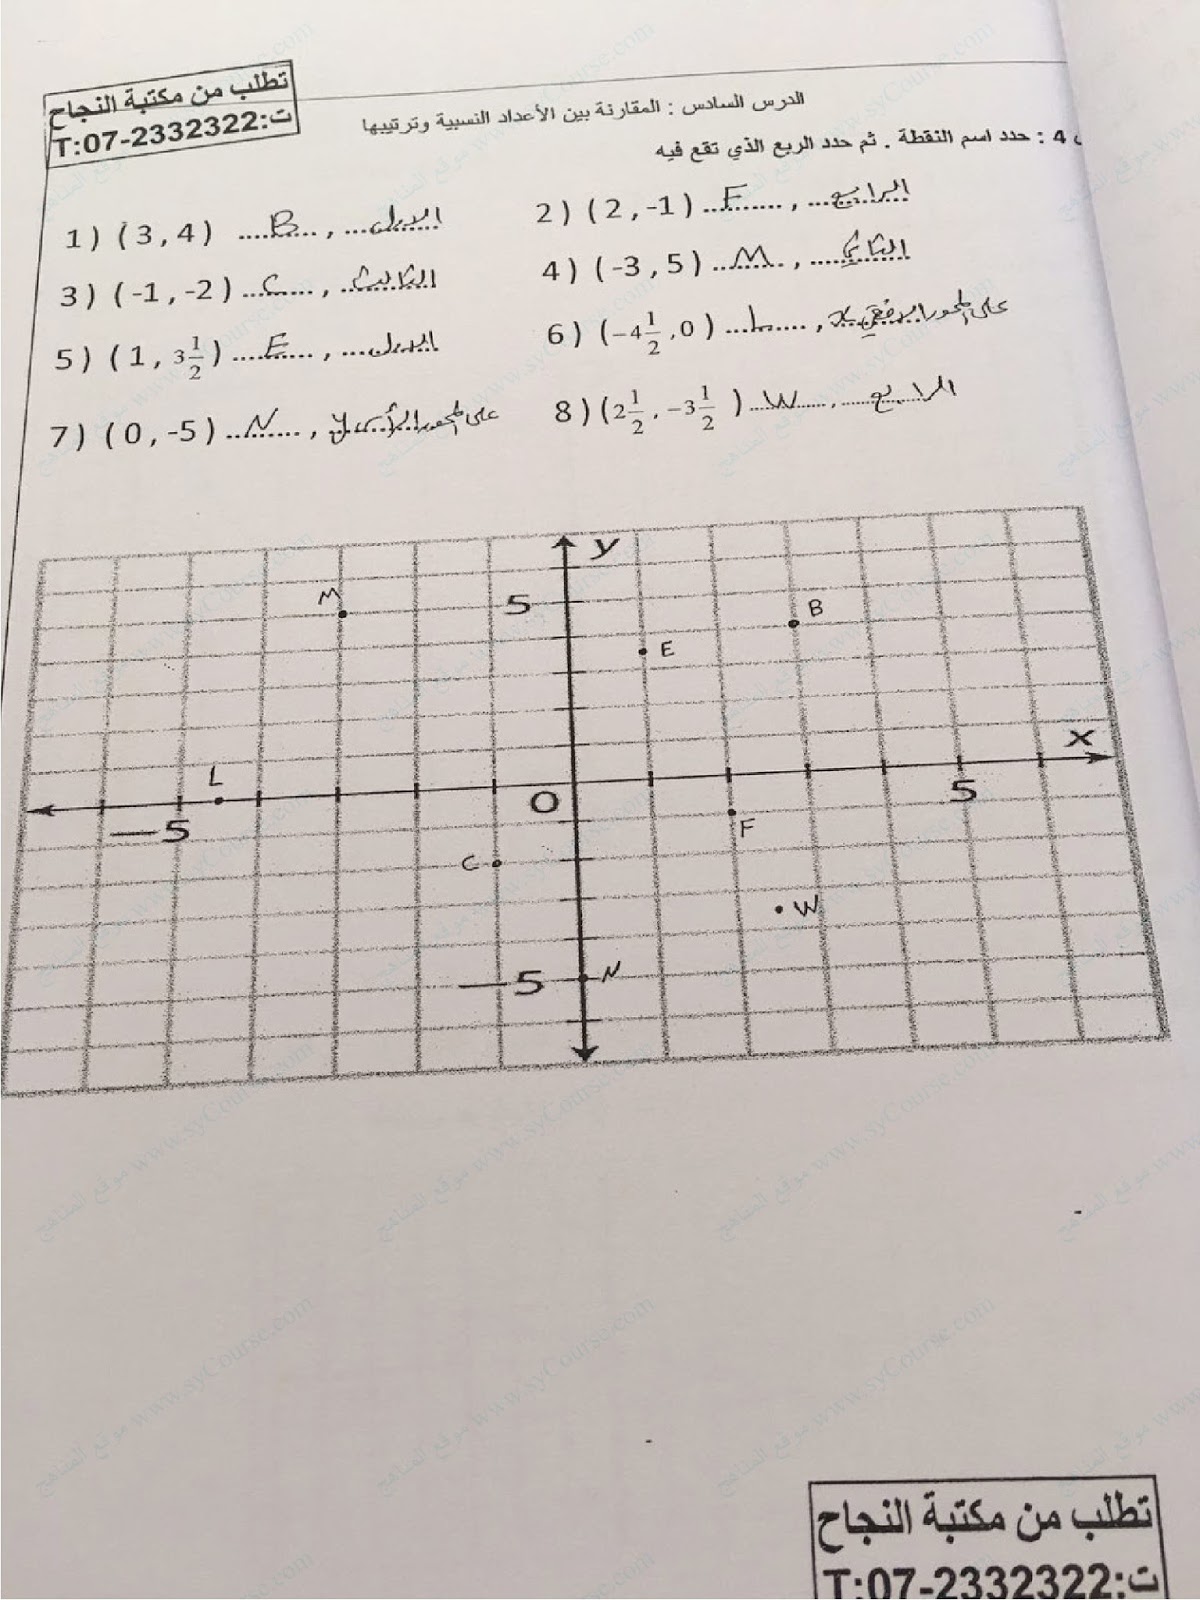 تطلب من مكتبة النجاح
T:07-2332322:ت
الدرس السادس : المقارنة بين الأعداد النسبية وترتيبها
4 : حدد اسم النقطة . ثم حدد الربع الذي تقع فيه
1) (3,4) ....B...., ...الاول...
2) (2,-1) ...F......, ...الرابع...
3) (-1,-2) ...C...., ...الثالث...
4) (-3,5) ...M...., ...الثاني...
5) (1, 3 1/2) ....E...., ...الاول...
6) (-4 1/2 ,0) ...L....., على المحور الافقي x
7) (0,-5) ...N....., على المحور الرأسي y
8) (2 1/2, -3 1/2) ....W....., ...الرابع...
y
M
5
B
E
x
L
-5
O
5
F
C
W
-5
N
تطلب من مكتبة النجاح
T:07-2332322:ت
موقع المناهج www.syCourse.com